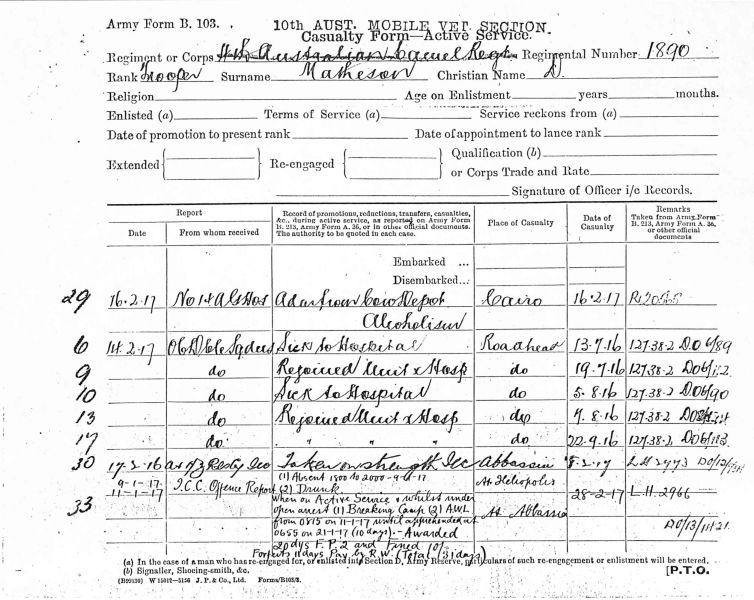 Army Form B. 103.
10th AUST. MOBILE VET. SECTION.
Casualty Form—Active Service.
Regiment or Corps Australian Camel Regt Regimental Number 1890
Rank Trooper Surname Matheson Christian Name D.
Religion Age on Enlistment years months.
Enlisted (a) Terms of Service (a) Service reckons from (a)
Date of promotion to present rank Date of appointment to lance rank
Extended Re-engaged Qualification (b)
or Corps Trade and Rate
Signature of Officer i/c Records.
Report
Date From whom received
Record of promotions, reductions, transfers, casualties,
&c., during active service, as reported on Army Form
B. 213, Army Form A. 36, or in other official documents.
The authority to be quoted in each case.
Place of Casualty
Date of
Casualty
Remarks
Taken from Army Form
B. 213, Army Form A. 36,
or other official
documents
Embarked ...
Disembarked ...
29 16.2.17 No 14 A G Hos Adm from Depot Cairo 16.2.17
Alcoholism
6 14.2.17 Sick to Hospital Roadhead 13.7.16 127.38.2 DO 6/89
9 do Rejoined Unit x Hosp do 19.7.16 127.38.2
10 do Sick to Hospital do 5.8.16 127.38.2 DO 6/90
13 do Rejoined Unit x Hosp do 9.8.16 127.38.2
17 do " " " do 22.9.16 127.38.2 DO 6/113
30 17.2.16 Taken on strength Abbassia 8.2.17
9-1-17 (1) Absent 1800 to 2000-9-1-17
11-1-17 I.C.C. Offence Report (2) Drunk At Heliopolis 28-2-17 L.H. 2966
33 When on Active Service & whilst under
open arrest (1) Breaking Camp (2) AWL At Abbassia
from 0815 on 11-1-17 until apprehended at DO/13/1121.
0655 on 21-1-17 (10 days).- Awarded
20 days F.P. 2 and Fined
Forfeits 11 days Pay by R.W. (Total 31 days)
(a) In the case of a man who has re-engaged for, or enlisted into Section D, Army Reserve, particulars of such re-engagement or enlistment will be entered.
(b) Signaller, Shoeing-smith, &c. [P.T.O.
(B29130) W 15012—5156 J. P. & Co., Ltd. Forms/B103/3.